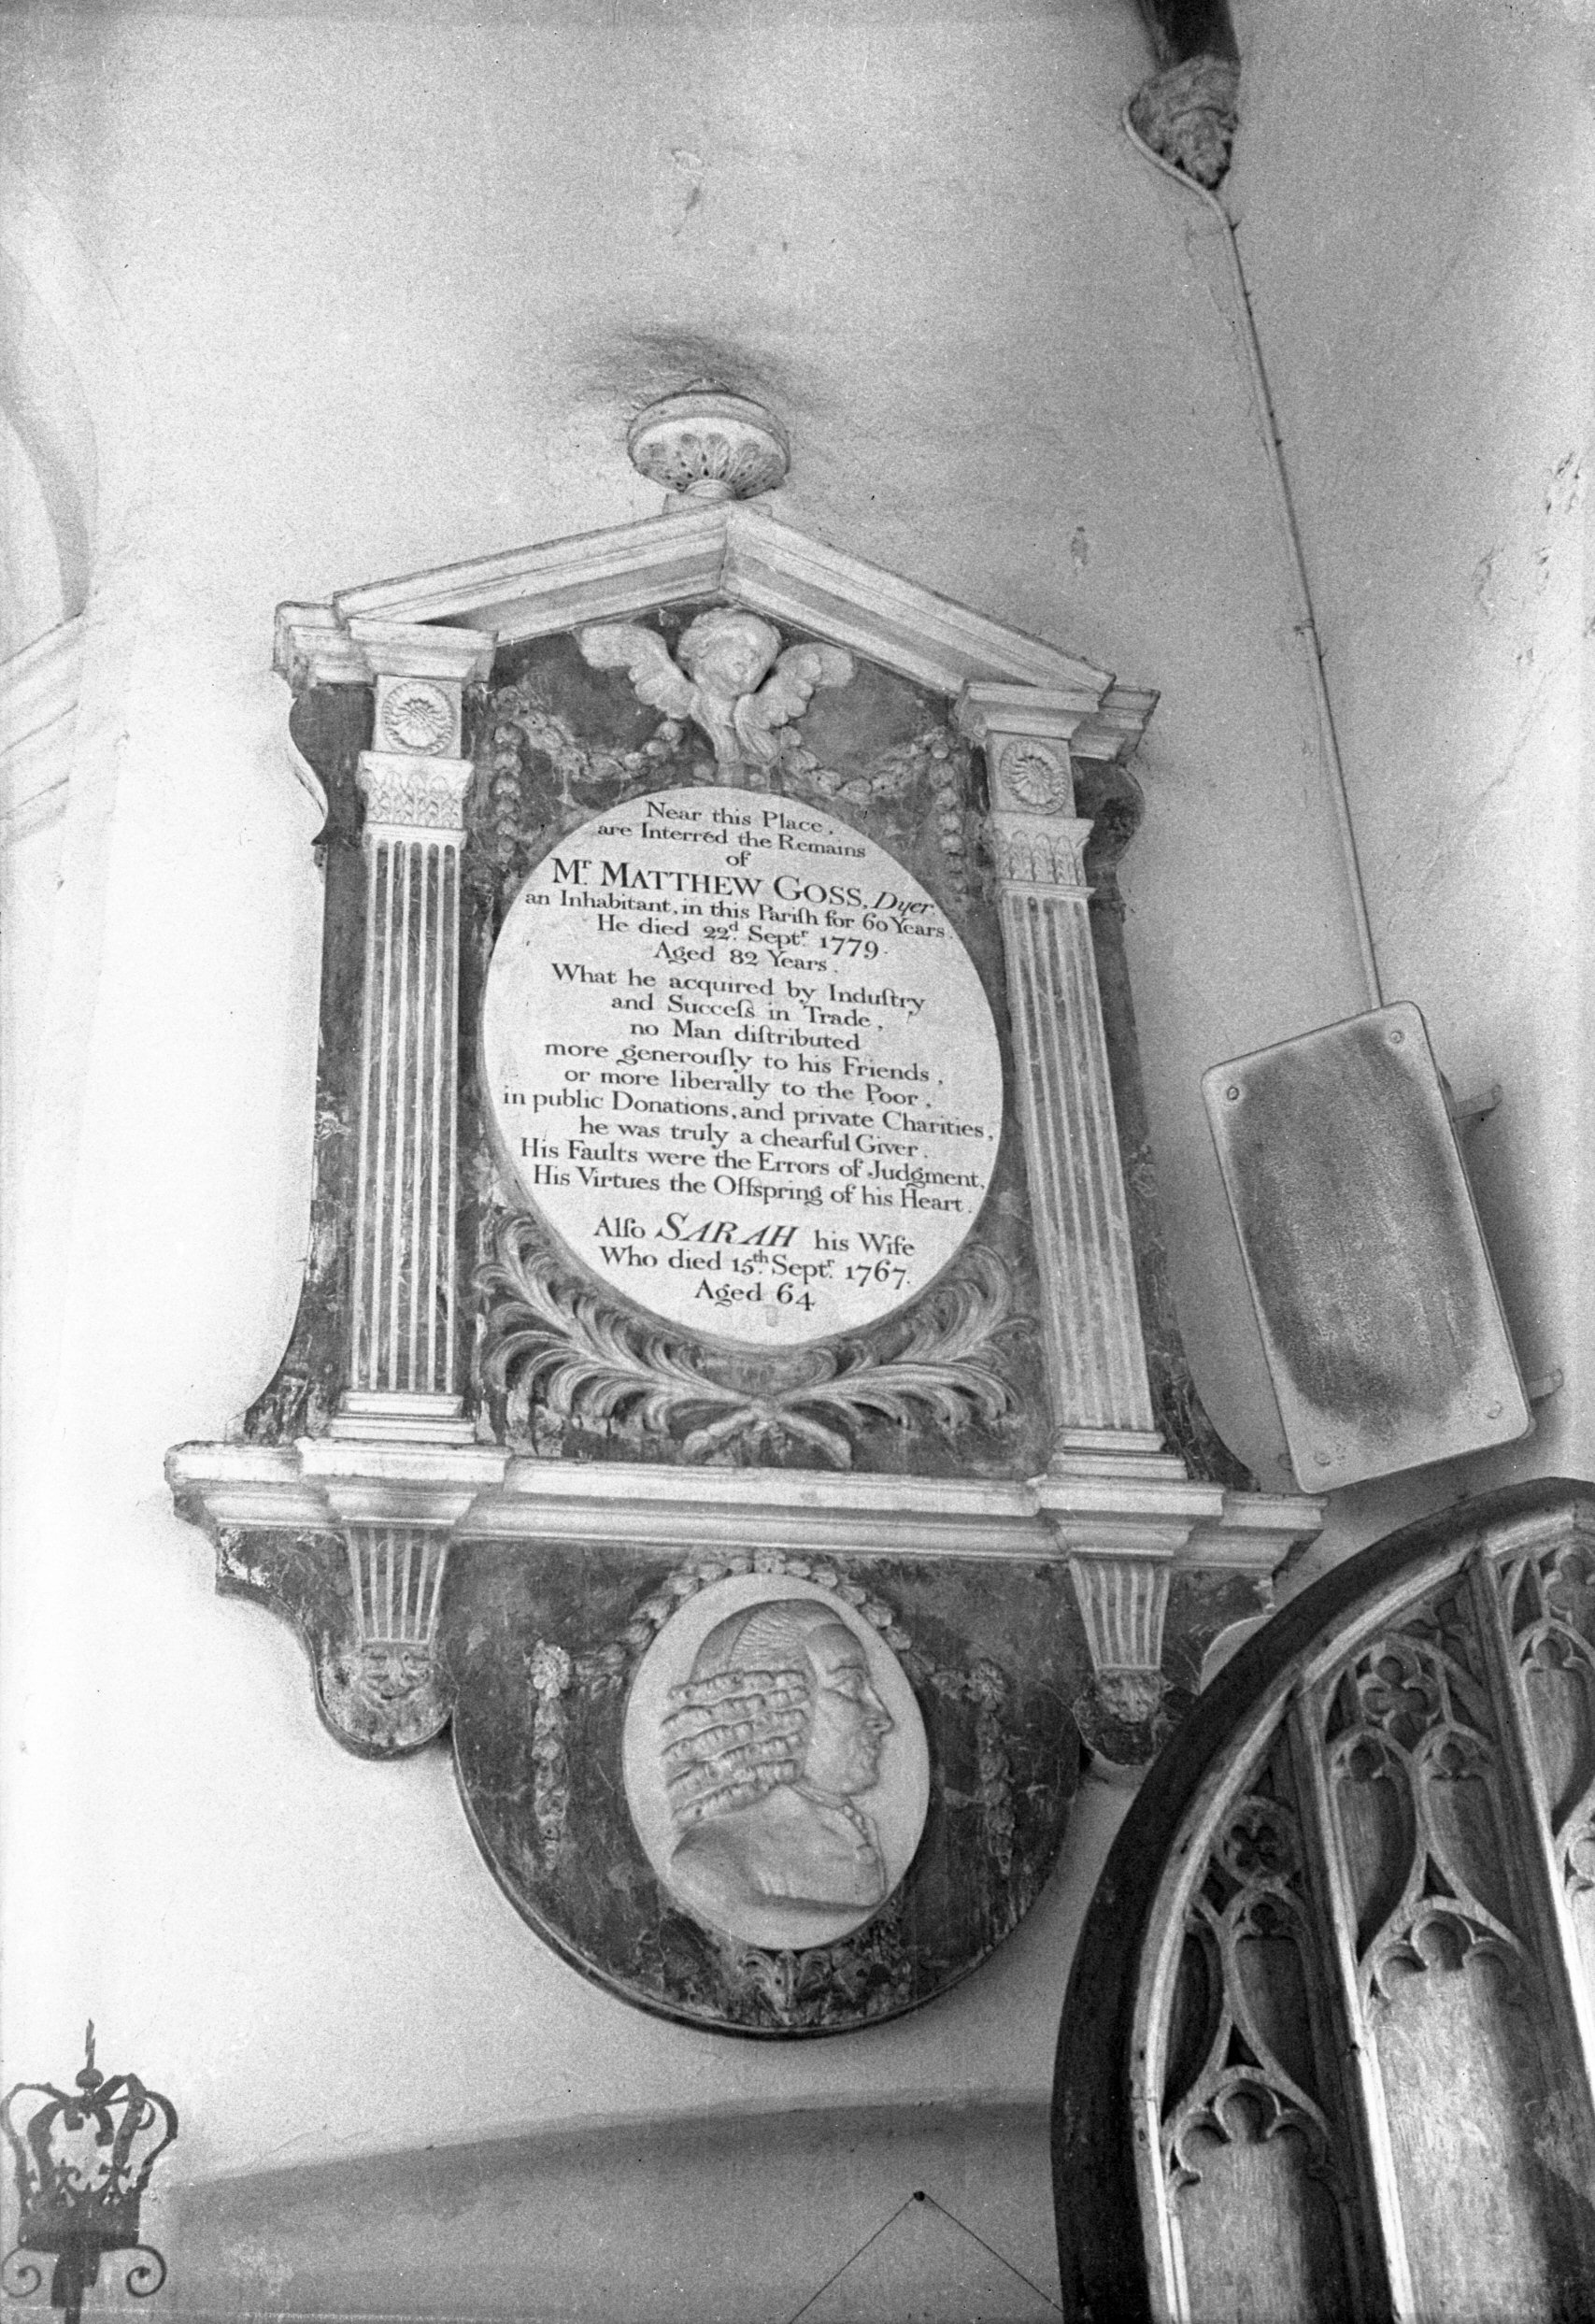 Near this Place,
are Interred the Remains
of
Mr. MATTHEW GOSS, Dyer
an Inhabitant, in this Pariſh for 60 Years.
He died 22d. Septr. 1779.
Aged 82 Years.
What he acquired by Induſtry
and Succeſs in Trade,
no Man diſtributed
more generouſly to his Friends,
or more liberally to the Poor,
in public Donations, and private Charities,
he was truly a chearful Giver.
His Faults were the Errors of Judgment,
His Virtues the Offspring of his Heart.
Alſo SARAH his Wife
Who died 15th. Septr. 1767.
Aged 64